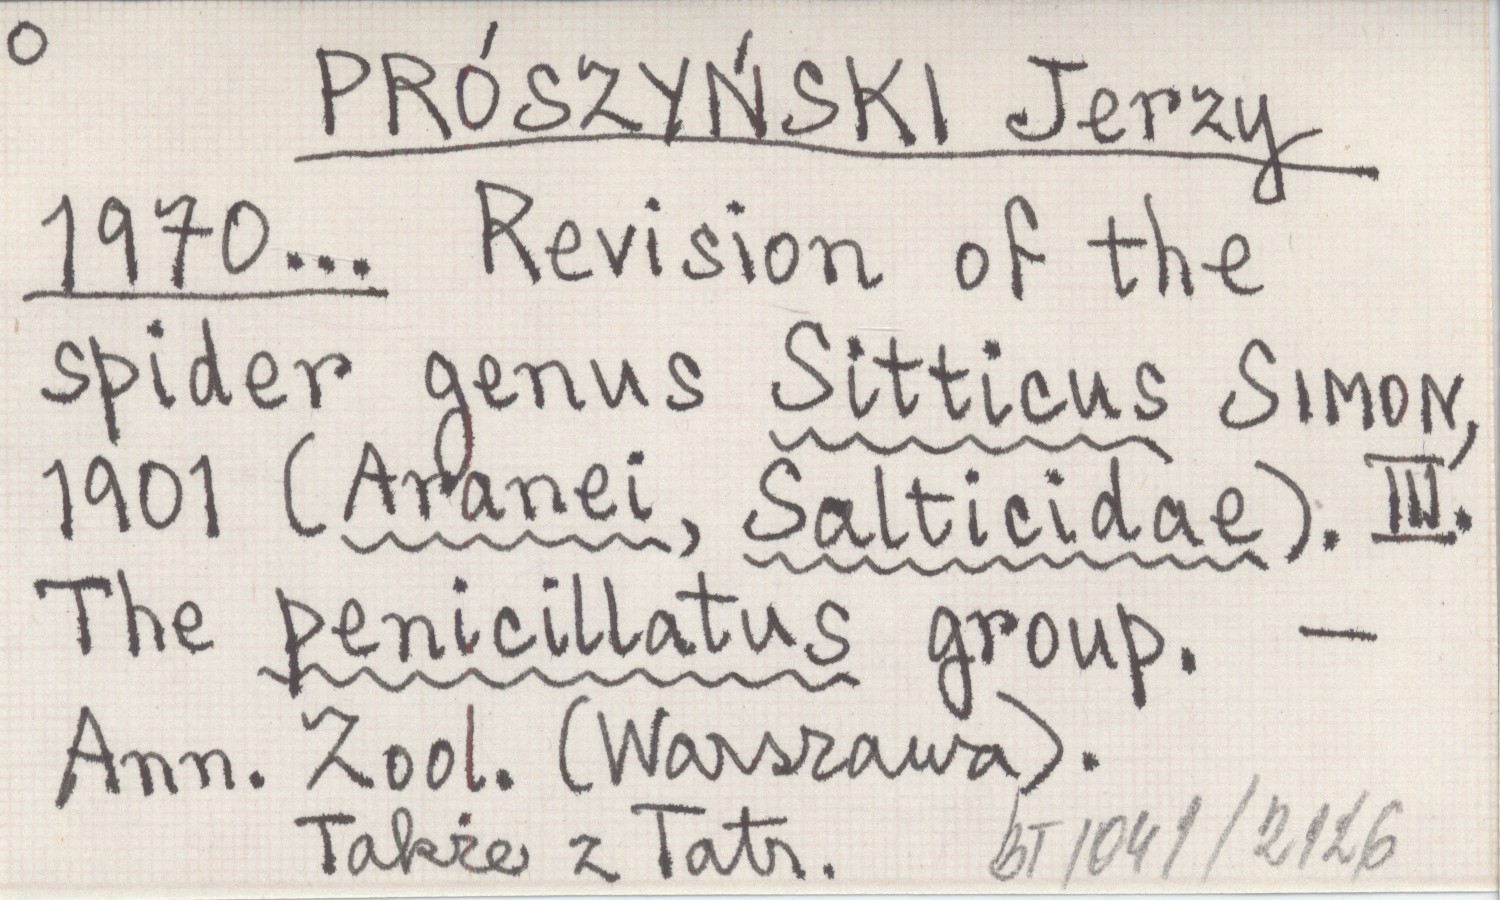 PRÓSZYŃSKI Jerzy
1970... Revision of the
spider genus Sitticus SIMON,
1901 (Aranei, Salticidae). III.
The penicillatus group. —
Ann. Zool. (Warszawa).
Także z Tatr.
BT/041/2126